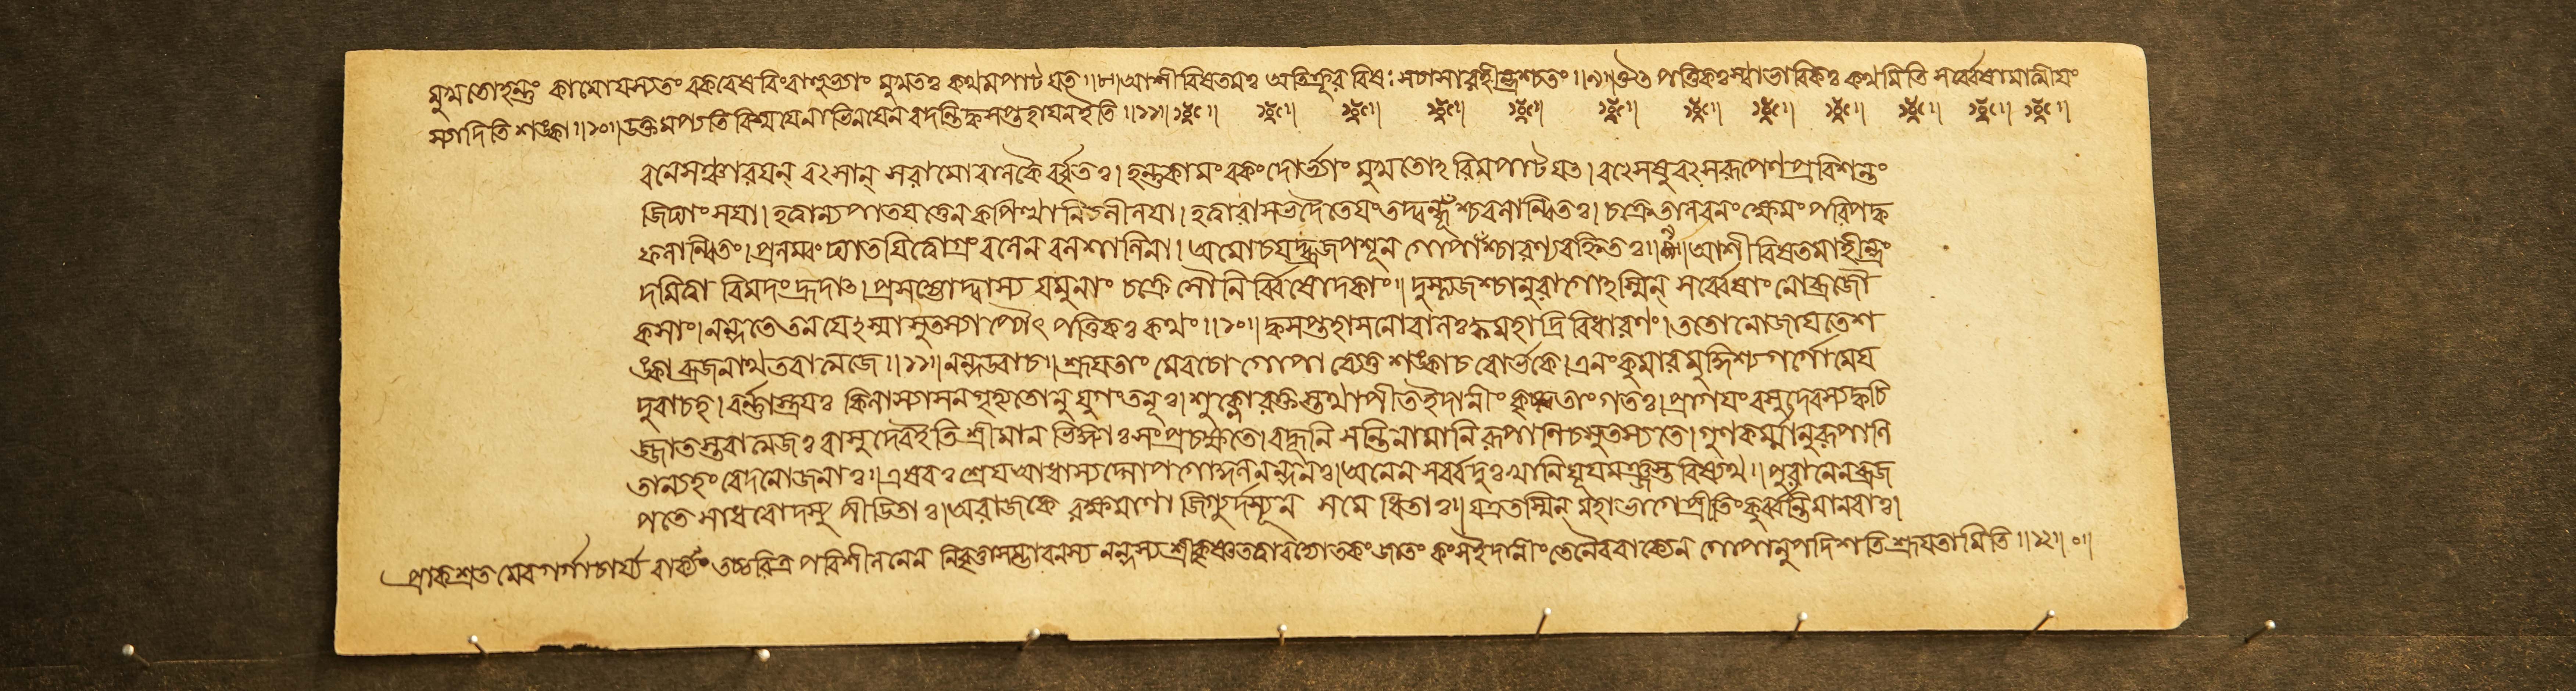 মুখতোহন্তুং কামোযস্যতং বকবেষ বিংবাহুভ্যাং মুখতঃ কথমপাটযৎ ॥৮॥ আশীবিষতমঃ অতিক্রূর বিষঃ সচাসারহীন্দ্রশ্চতং ॥৯॥ ঔৎপত্তিকঃ স্বাভাবিকঃ কথমিতি সর্ব্বেষামাত্মীযং
স্যাদিতি শঙ্কা ॥১০॥ উক্তমপ্যতি বিস্ময়েনাভিনযেন বদন্তি ক্বসপ্তহাযনইতি ॥১১॥
বনেসঞ্চারযন্ বৎসান্ সরামোবালকৈ র্ব্বৃতঃ। হন্তুকামং বকং দোর্ভ্যাং মুখতোঽরিমপাটযৎ। বৎসেষুবৎসরূপেণপ্রবিশন্তং
জিঘাং সযা। হত্বান্যপাতযত্তেন কপিত্থানিচলীলযা। হত্বারাসভদৈতেযং তদ্বন্ধূঁশ্চবলান্বিতঃ। চক্রেতালবনং ক্ষেমং পরিপক্ক
ফলান্বিতং। প্রলম্বং ঘাতযিত্বোগ্রং বলেন বলশালিনা। অমোচযদ্ব্রজপশূন গোপাঁশ্চারণ্যবহ্নিতঃ॥ আশীবিষতমাহীন্দ্রং
দমিত্বা বিমদং হ্রদাৎ। প্রসহ্যোদ্বাস্য যমুনাং চক্রে সৌনির্ব্বিষোদকাং॥ দুস্ত্যজশ্চানুরাগোঽস্মিন্ সর্ব্বেষাং নোব্রজৌ
কসাং। নন্দতেতনযেঽস্মাসুতস্যাপ্যৌৎপত্তিকঃ কথং ॥১০॥ ক্বসপ্তহাযনোবালঃ ক্বমহাদ্রি বিধারণং। ততোনোজাযতেশ
ঙ্কা ব্রজনাথতবাত্মজে ॥১১॥ নন্দউবাচ॥ শ্রূযতাং মেবচো গোপা ব্যেতু শঙ্কাচ বোর্ভকে। এনং কুমারমুদ্দিশ্যগর্গোমেয
দুবাচহ। বর্ণাস্ত্রযঃ কিলাস্যাসন গৃহ্নতোনু যুগং তনূঃ। শুক্লোরক্তস্তথাপীতইদানীং কৃষ্ণতাং গতঃ। প্রাগযং বসুদেবস্যক্বচি
জ্জাতস্তবাত্মজঃ বাসুদেবইতি শ্রীমান ভিজ্ঞাঃ সংপ্রচক্ষতে। বহূনি সন্তিনামানি রূপাণিচসুতস্যতে। গুণকর্ম্মানুরূপাণি
তান্যহং বেদনোজনাঃ॥ এষবঃ শ্রেযআধাস্যদ্গোপগোকুলনন্দনঃ। অনেন সর্ব্বদুঃর্গানিযূযমঞ্জস্তরিষ্যথ॥ পুরানেনব্রজ
পতে সাধবোদস্যু পীডিতাঃ। অরাজকে রক্ষ্যমাণা জিগ্যুর্দস্যূন সমেধিতাঃ॥ যএতস্মিন্ মহাভাগেপ্রীতিং কুর্ব্বন্তিমানবাঃ।
প্রাকশ্রুতমেবগর্গাচার্য্য বাক্যং তচ্চরিত্র পরিশীলনেন নিবৃত্তাসম্ভাবনস্য নন্দস্য শ্রীকৃষ্ণতত্ত্বাববোধকং জাতং ইদানীং তেনৈববাক্যেন গোপানুপদিশতি শ্রূযতামিতি ॥১২॥